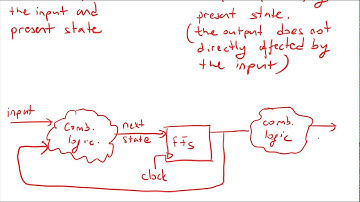 the input and
present state
present state.
(the output does not
directly affected by
the input)
input
comb.
logic.
next
state
FFs
clock
comb.
logic